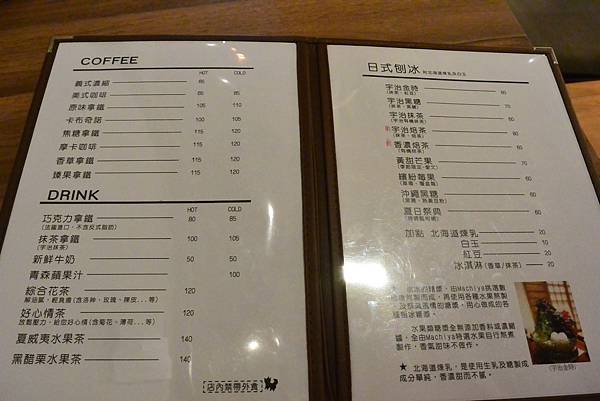 COFFEE
HOT COLD
義式濃縮 65
美式咖啡 85 85
原味拿鐵 105 110
卡布奇諾 105 110
焦糖拿鐵 115 120
摩卡咖啡 115 120
香草拿鐵 115 120
榛果拿鐵 115 120
DRINK
HOT COLD
巧克力拿鐵 80 85
(法國進口,不含反式脂肪)
抹茶拿鐵 100 105
(宇治抹茶)
新鮮牛奶 50 50
青森蘋果汁 100
綜合花茶 120
解油膩,輕負擔(含洛神、玫瑰、陳皮...等)
好心情茶 120
放鬆壓力,給您好心情(含菊花、薄荷...等)
夏威夷水果茶 140
黑醋栗水果茶 140
店內禁帶外食
日式刨冰 附北海道煉乳及白玉
宇治金時 80
(抹茶、紅豆)
宇治黑糖 70
(抹茶、黑糖)
宇治抹茶 60
宇治焙茶 60
香濃焙茶 60
黃甜芒果 60
繽紛莓果 60
沖繩黑糖 60
夏日祭典 60
加點 北海道煉乳 20
白玉 10
紅豆 20
冰淇淋(香草/抹茶) 20
製作,香氣甜味不做作。
★ 北海道煉乳,是使用生乳及糖製成
成分單純,香濃甜而不膩。
(宇治金時)